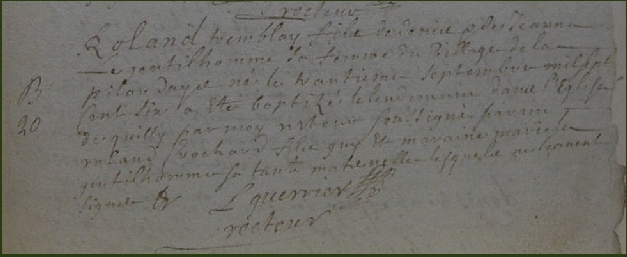 recteur
Roland tremblay fils de denie & de Jeanne
Le gentilhomme sa femme du village de la
né le trantieme septembre mil sept
B
cent six a ete baptizé le lendemain dans l'Eglise
20
de quilly par moy recteur soussigné parain
roland Rochard fils guy et maraine marie le
gentilhomme sa tante maternelle lesquels ne scavent
signer
L guerrier
recteur